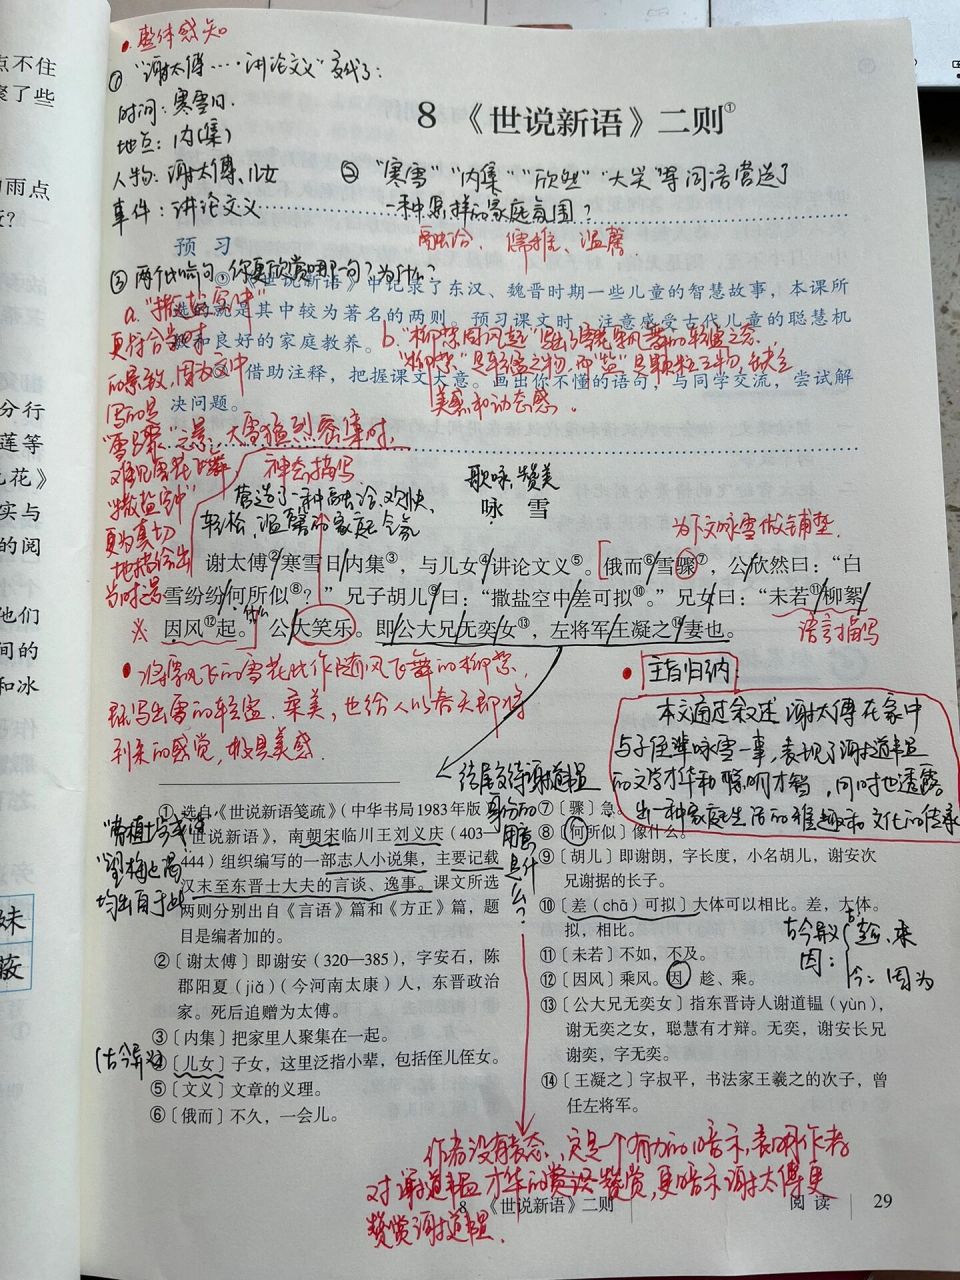 点不住
聚了些
雨点
分行
莲等
花》
实与
的阅
他们
间的
和冰
妹
•整体感知
①“谢太傅……讲论文义”交代了：
时间：寒雪日.
地点：内(集)
人物：谢太傅、儿女
事件：讲论文义
8 《世说新语》二则①
②“寒雪”“内集”“欣然”“大笑”等词语营造了
一种怎样的家庭氛围？
融洽、儒雅、温馨
预 习
③两个咏雪句，你更欣赏哪一句？为什么？
《世说新语》中记录了东汉、魏晋时期一些儿童的智慧故事，本课所
选的就是其中较为著名的两则。预习课文时，注意感受古代儿童的聪慧机
敏和良好的家庭教养。
借助注释，把握课文大意。画出你不懂的语句，与同学交流，尝试解
决问题。
a.“撒盐空中”
更符合当时
的景致，因为文中
写的是
“雪骤”之景，大雪猛烈密集时，
难见雪花飞舞
“撒盐空中”
更为真切
地描绘出
当时之景
b.“柳絮因风起”写出了雪花飘舞的轻盈之态，
“柳絮”是轻盈之物，而“盐”是颗粒之物，缺乏
美感和动态感。
神态描写
营造了一种融洽、欢快、
轻松、温馨的家庭氛围
歌咏，赞美
咏 雪
为下文咏雪做铺垫.
谢太傅②寒雪日内集③，与儿女④讲论文义⑤。俄而⑥雪骤⑦，公欣然曰：“白
雪纷纷何所似⑧？”兄子胡儿⑨曰：“撒盐空中差可拟⑩。”兄女曰：“未若⑪柳絮
因风⑫起。”公大笑乐。即公大兄无奕女⑬，左将军王凝之⑭妻也。
什么
语言描写
•将飘飞的雪花比作随风飞舞的柳絮，
既写出雪的轻盈、柔美，也给人以春天即将
到来的感觉，极具美感.
•主旨归纳
本文通过叙述谢太傅在家中
与子侄辈咏雪一事，表现了谢道韫
的文学才华和聪明才智，同时也透露
出一种家庭生活的雅趣和文化的传承
结尾交待谢道韫
身份的
用意
是什
么？
①选自《世说新语笺疏》（中华书局1983年版）。
《世说新语》，南朝宋临川王刘义庆（403—
444）组织编写的一部志人小说集，主要记载
汉末至东晋士大夫的言谈、逸事。课文所选
两则分别出自《言语》篇和《方正》篇，题
目是编者加的。
“望梅止渴
均出自于此
②〔谢太傅〕即谢安（320—385），字安石，陈
郡阳夏（jiǎ）（今河南太康）人，东晋政治
家。死后追赠为太傅。
③〔内集〕把家里人聚集在一起。
(古今异义)
④〔儿女〕子女，这里泛指小辈，包括侄儿侄女。
⑤〔文义〕文章的义理。
⑥〔俄而〕不久，一会儿。
⑦〔骤〕急。
⑧〔何所似〕像什么。
⑨〔胡儿〕即谢朗，字长度，小名胡儿，谢安次
兄谢据的长子。
⑩〔差（chā）可拟〕大体可以相比。差，大体。
拟，相比。
⑪〔未若〕不如，不及。
⑫〔因风〕乘风。因，趁、乘。
古今异义
因：
古：趁、乘
今：因为
⑬〔公大兄无奕女〕指东晋诗人谢道韫（yùn），
谢无奕之女，聪慧有才辩。无奕，谢安长兄
谢奕，字无奕。
⑭〔王凝之〕字叔平，书法家王羲之的次子，曾
任左将军。
作者没有表态，这是一个有力的暗示，表明作者
对谢道韫才华的赏识赞赏，更暗示谢太傅更
赞赏谢道韫.
8 《世说新语》二则
阅 读 29